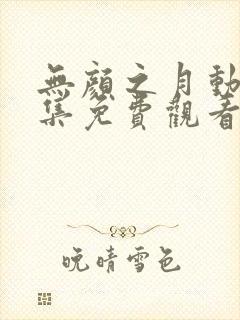 無顏之月動
集免費觀看
晚晴雪色